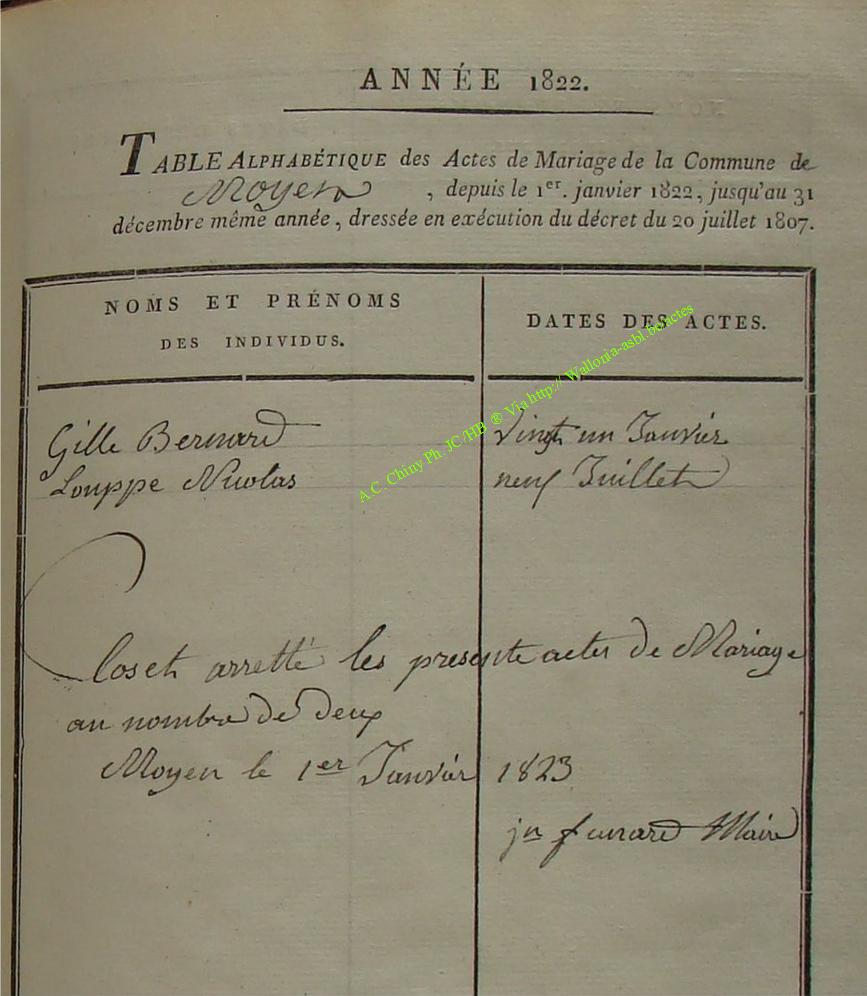 ANNÉE 1822.
TABLE ALPHABÉTIQUE des Actes de Mariage de la Commune de
Moyen, depuis le 1er. janvier 1822, jusqu'au 31
décembre même année, dressée en exécution du décret du 20 juillet 1807.
NOMS ET PRÉNOMS
DES INDIVIDUS.
DATES DES ACTES.
Gille Bernard vingt un Janvier
Louppe Nicolas neuf Juillet
A.C. Chiny Ph. JC/HB ® Via http:// Wallonia-asbl.be/actes
Clos et arretté les presente actes de Mariage
au nombre de deux
Moyen le 1er Janvier 1823
jn Maire